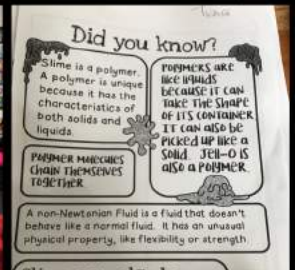 Did you know?
Slime is a polymer.
A polymer is unique
because it has the
characteristics of
both solids and
liquids.
POLYMER MOLECULES
CHAIN THEMSELVES
TOGETHER
POLYMERS ARE
like liquids
because IT CAN
Take THE SHAPE
OF ITS CONTAINER
IT CAN also be
Picked up like a
SOLID. Jell-O IS
also a POLYMER.
A non-Newtonian Fluid is a fluid that doesn't
behave like a normal fluid. It has an unusual
physical property, like flexibility or strength